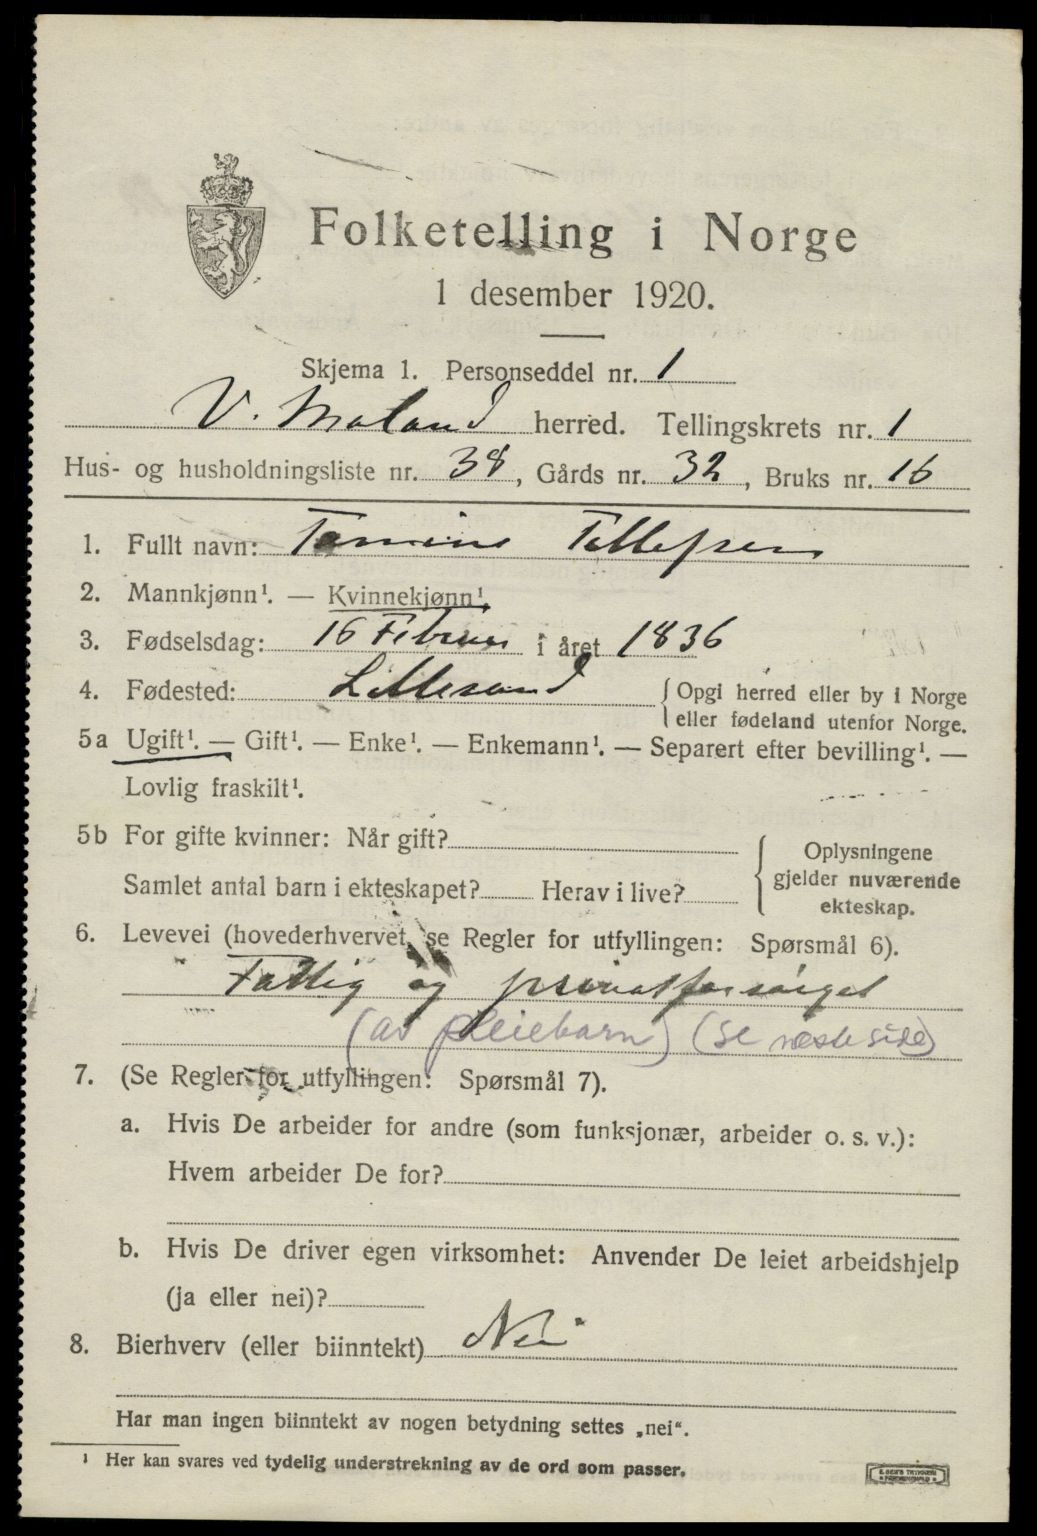 Folketelling i Norge
1 desember 1920.
Skjema 1. Personseddel nr. 1
V. Moland herred. Tellingskrets nr. 1
Hus- og husholdningsliste nr. 38, Gårds nr. 32, Bruks nr. 16
1. Fullt navn: Tomine Tellefsen
2. Mannkjønn¹. — Kvinnekjønn¹.
3. Fødselsdag: 16 Februar i året 1836
4. Fødested: Lillesand {Opgi herred eller by i Norge
eller fødeland utenfor Norge.
5a Ugift¹. — Gift¹. — Enke¹. — Enkemann¹. — Separert efter bevilling¹. —
Lovlig fraskilt¹.
5b For gifte kvinner: Når gift?
Samlet antal barn i ekteskapet? Herav i live?
{Oplysningene
gjelder nuværende
ekteskap.
6. Levevei (hovederhvervet, se Regler for utfyllingen: Spørsmål 6).
Fattig og privatforsørget
(av pleiebarn) (se næste side)
7. (Se Regler for utfyllingen: Spørsmål 7).
a. Hvis De arbeider for andre (som funksjonær, arbeider o. s. v.):
Hvem arbeider De for?
b. Hvis De driver egen virksomhet: Anvender De leiet arbeidshjelp
(ja eller nei)?
8. Bierhverv (eller biinntekt) Nei
Har man ingen biinntekt av nogen betydning settes „nei".
¹ Her kan svares ved tydelig understrekning av de ord som passer.